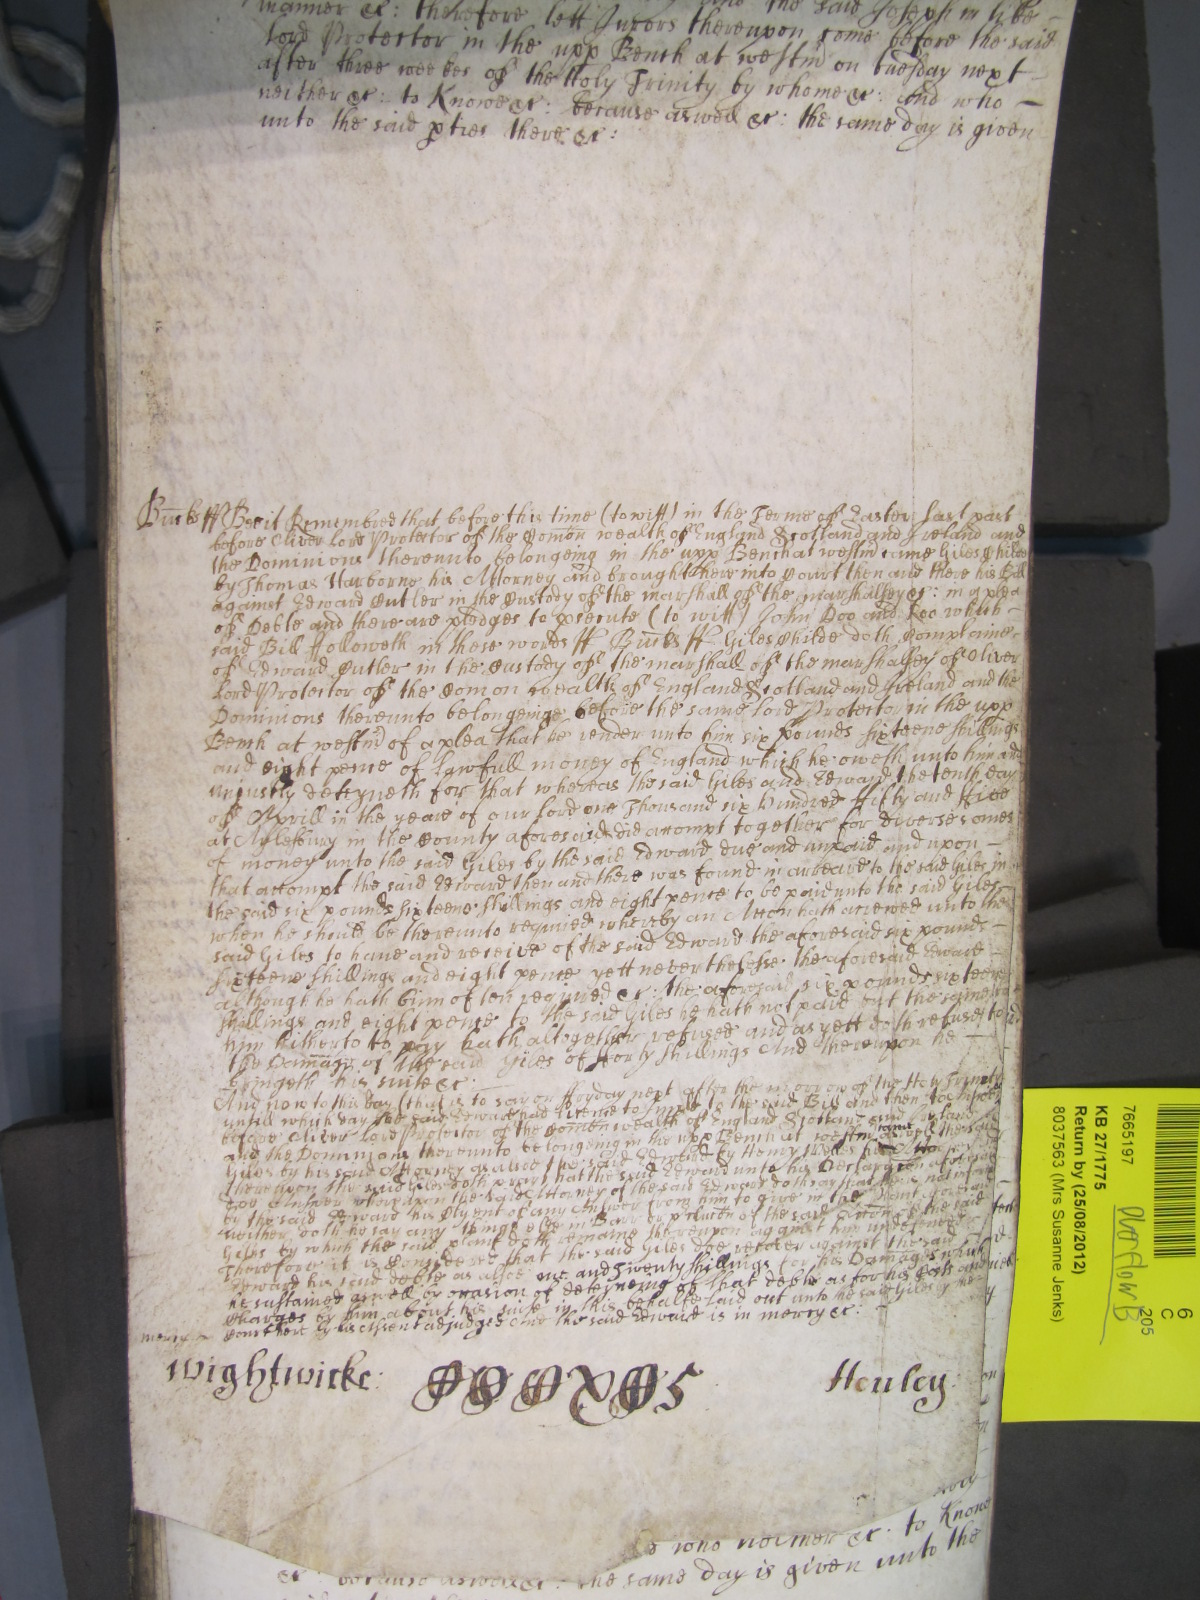 manner &c: therefore lett Jurors thereupon come before the said
Lord Protector in the upp Bench at westm on Tuesday next
after three weekes of the Holy Trinity by whome &c: And who
neither &c: to Knowe &c: because aswell &c: the same day is given
unto the said pties there &c:
Bucks ff Bee it Remembred that before this time (to witt) in the Terme of Easter last past
before Oliver Lord Protector of the Comon wealth of England Scotland and Ireland and
the Dominions thereunto belongeing in the upp Bench at westm came Giles Childe
by Thomas Harborne his Attorney and brought here into Court then and there his Bill
against Edward Cutler in the Custody of the marshall of the marshallsey &c: in a plea
of Debte and there are pledges to psecute (to witt) John Doo and Roo which
said Bill followeth in these words ff Bucks ff Giles Childe doth Complaine
of Edward Cutler in the Custody of the marshall of the marshallsey of Oliver
Lord Protector of the Comon wealth of England Scotland and Ireland and the
Dominions thereunto belongeinge before the same Lord Protector in the upp
Bench at westm of a plea that he render unto him six pounds sixteene shillings
and eight pence of lawfull money of England which he oweth unto him and
unjustly deteyneth for that whereas the said Giles and Edward the tenth day
of Aprill in the yeare of our Lord one Thousand six Hundred fifty and five
at Aylesbury in the County aforesaid did accompt together for diverse somes
of money unto the said Giles by the said Edward due and unpaid and upon
that accompt the said Edward then and there was found in arreare to the said Giles in
the said six pounds sixteene shillings and eight pence to be paid unto the said Giles
when he should be thereunto required whereby an Accon hath accrewed unto the
said Giles to have and receive of the said Edward the aforesaid six pounds
sixteene shillings and eight pence yett neverthelesse the aforesaid Edward
although he hath binn often required &c: the aforesaid six pounds sixteene
shillings and eight pence to the said Giles he hath not paid but the same
him hitherto to pay hath altogether refused and as yett doth refuse to
the Damage of the said Giles of forty shillings And thereupon he
bringeth his suite &c:
And now to this day (that is to say on ffryday next after the morrow of the Holy Trinity
untill which day the said Edward had licence to Imparle to the said Bill and then to
before Oliver Lord Protector of the Comon wealth of England Scotland and Ireland
and the Dominions thereunto belongeing in the upp Bench at westm came aswell the said
Giles by his said Attorney as alsoe the said Edward by Henry his Attor
thereupon the said Giles doth pray that the said Edward unto his Declaracon aforesaid
doe Answer whereupon the said Attorney of the said Edward doth say that he is not informed
by the said Edward his Clyent of any Answer from him to give in the
neither doth he say any thing else in Barr or preclucon of the said Accon of the said
Giles by which the said plaint doth remaine thereupon against him undefended
Therefore it is Considered that the said Giles doe recover against the said
Edward his said debte as alsoe one and Twenty shillings for his Damages which
he sustained aswell by occasion of deteyneing of that debte as for his Costs and
Charges by him about his suite in this behalfe laid out unto the said Giles by the
Court here by his assent adjudged And the said Edward is in mercy &c:
mercy
Wightwicke:
Henley:
who neither &c: to Knowe
&c: because aswell &c: the same day is given unto the
7665197
KB 27/1775
Return by (25/08/2012)
8037563 (Mrs Susanne Jenks)
205
6
C